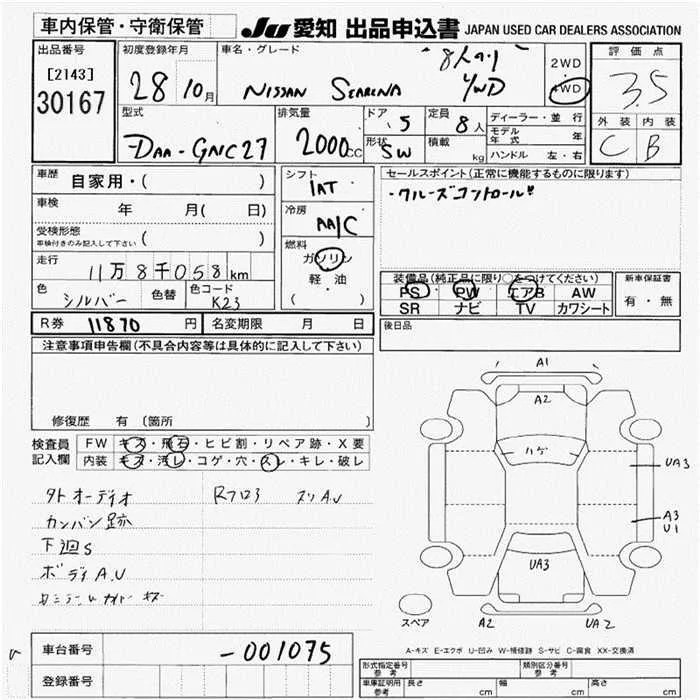 車内保管・守衛保管
JU 愛知 出品申込書 JAPAN USED CAR DEALERS ASSOCIATION
出品番号
[2143]
30167
初度登録年月
28 10月
車名・グレード
NISSAN SERENA
4WD
2WD
4WD
評価点
3.5
外装 内装
C B
型式
DAA-GNC27
排気量
2000cc
ドア
5
形状
SW
定員
8人
積載
kg
ディーラー・並行
モデル年式 年
ハンドル 左・右
車歴 自家用・( )
車検 年 月( 日)
受検形態
車検付きのみ記入して下さい ( )
走行
11万8千058km
色 シルバー 色替 色コード K23
シフト
IAT
冷房
AA/C
燃料
ガソリン
軽・油
( )
セールスポイント(正常に機能するものに限ります)
・クルーズコントロール!!
装備品(純正品に限り○をつけてください)
PS PW エアB AW
SR ナビ TV カワシート
新車保証書
有・無
R券 11870 円 名変期限 月 日
後日品
注意事項申告欄(不具合内容等は具体的に記入して下さい)
修復歴 有 〔箇所 〕
検査員
記入欄
FW キズ・飛石・ヒビ割・リペア跡・X要
内装 キズ・汚レ・コゲ・穴・スレ・キレ・破レ
外オーディオ
カンバン跡
下廻S
ボディA.U
A1
A2
ハゲ
UA3
A3
U1
UA3
A2
UA2
スペア
A-キズ E-エクボ U-凹み W-補修跡 S-サビ C-腐食 XX-交換済
車台番号 -001075
登録番号
形式指定番号
参考
類別区分番号
参考
車庫証明用
参考
長さ cm 幅 cm 高さ cm